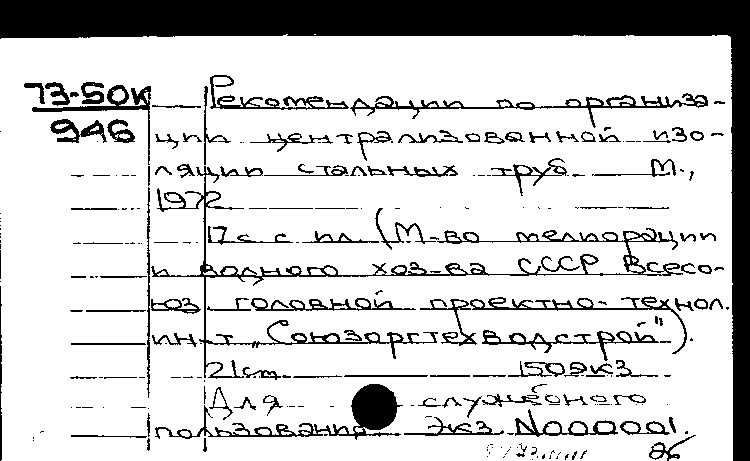 73-50К Рекомендации по организа-
946 ции централизованной изо-
ляции стальных труб. М.,
1972
17 с. с ил. (М-во мелиорации
и водного хоз-ва СССР. Всесо-
юз. головной проектно-технол.
ин-т „Союзоргтехводстрой").
21 см. 150 экз
Для служебного
пользования Экз. N000001.